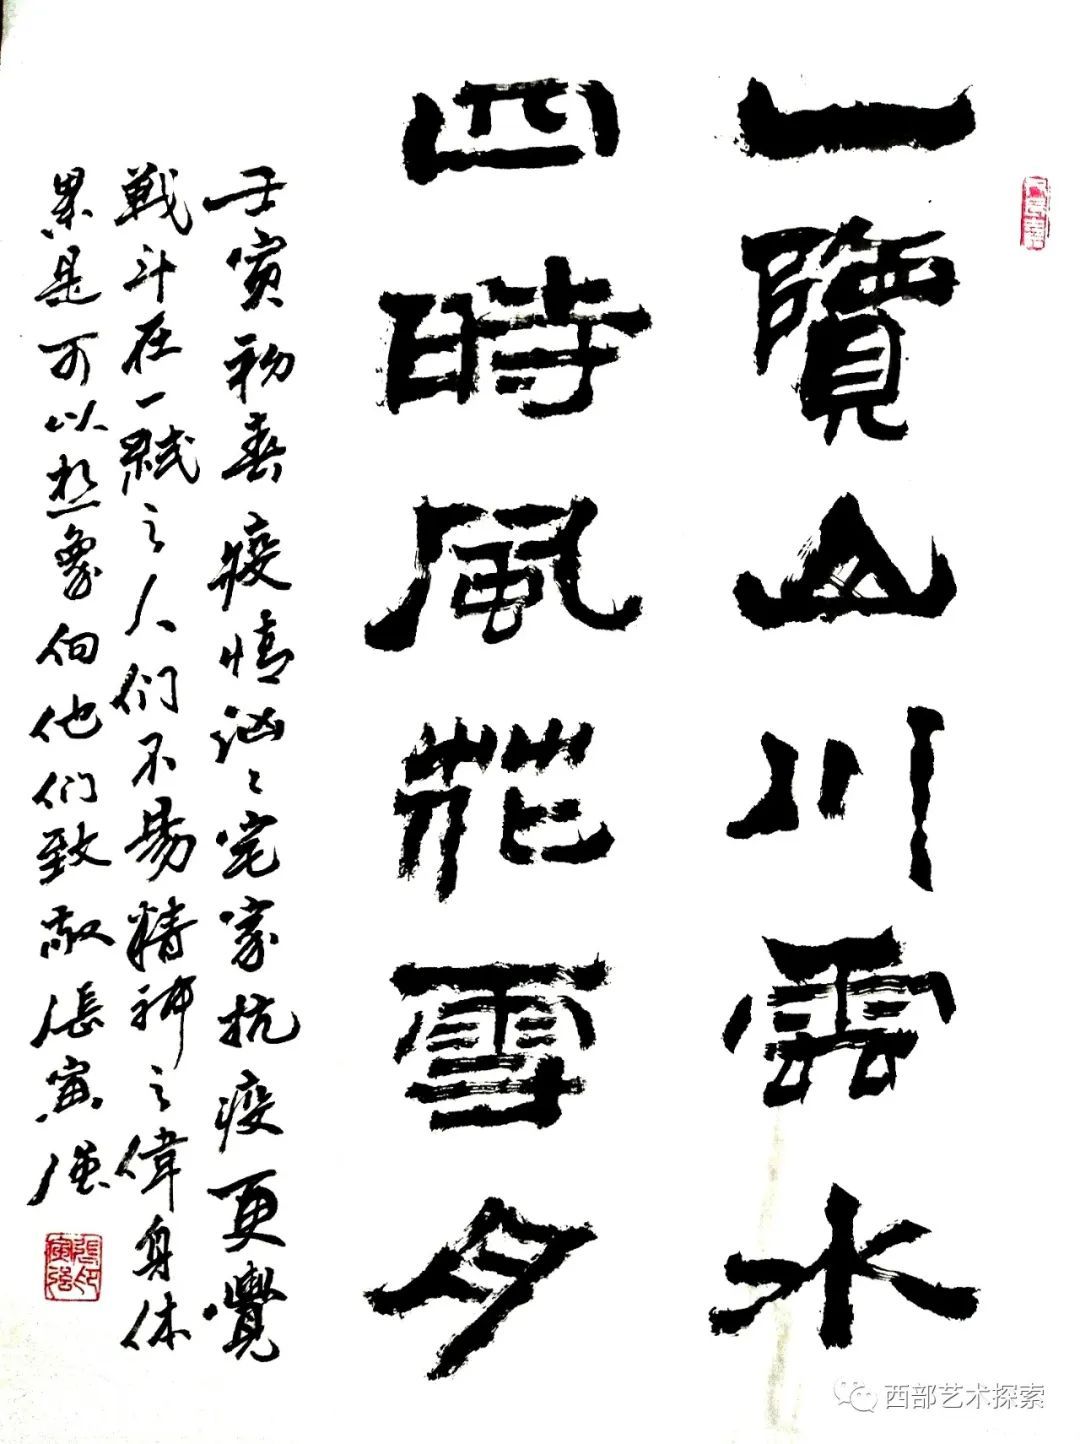 一覽山川雲水
四時風花雪月
壬寅初春疫情汹〻宅家抗疫更覺
戦斗在一綫之人们不易精神之偉身体
累是可以想象向他们致敬張寅强
張印寅強
西部艺术探索